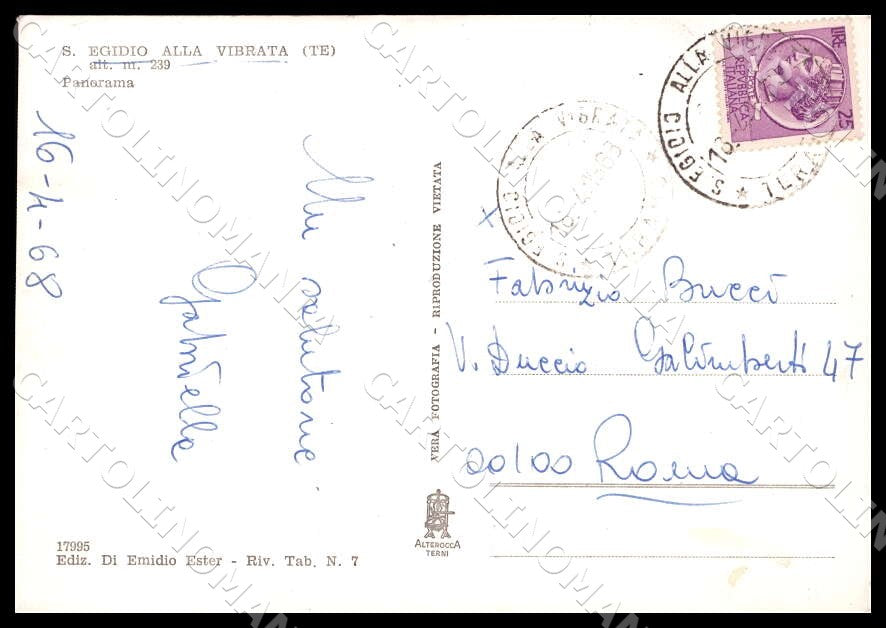 S. EGIDIO ALLA VIBRATA (TE)
alt. m. 239
Panorama
16-4-68
Un salutone
Gabriella
VERA FOTOGRAFIA - RIPRODUZIONE VIETATA
S. EGIDIO ALLA VIBRATA
S. EGIDIO ALLA
LIRE 25
REPUBBLICA
ITALIANA
x
Fabrizio Bucci
V. Duccio Galimberti 47
00100 Roma
17995
Ediz. Di Emidio Ester - Riv. Tab. N. 7
ALTEROCCA
TERNI
CARTOLINOMANIA